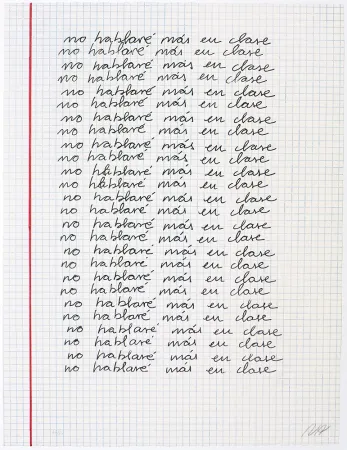 no hablaré más en clase
no hablaré más en clase
no hablaré más en clase
no hablaré más en clase
no hablaré más en clase
no hablaré más en clase
no hablaré más en clase
no hablaré más en clase
no hablaré más en clase
no hablaré más en clase
no hablaré más en clase
no hablaré más en clase
no hablaré más en clase
no hablaré más en clase
no hablaré más en clase
no hablaré más en clase
no hablaré más en clase
no hablaré más en clase
no hablaré más en clase
no hablaré más en clase
no hablaré más en clase
no hablaré más en clase
no hablaré más en clase
no hablaré más en clase
no hablaré más en clase
no hablaré más en clase